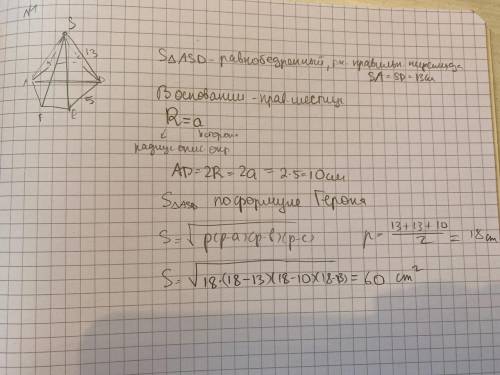 №1
S
13
5
A
D
F
E
5
S△ASD - равнобедренный, т.к. правильн. пирамида
SA = SD = 13см
В основании - прав. шестиуг
R = a
сторона
радиус опис окр
AD = 2R = 2a = 2·5 = 10 см
S△ASD по формуле Герона
S = √p(p-a)(p-b)(p-c)
p = (13+13+10)/2 = 18 cm
S = √18·(18-13)(18-10)(18-13) = 60 cm²